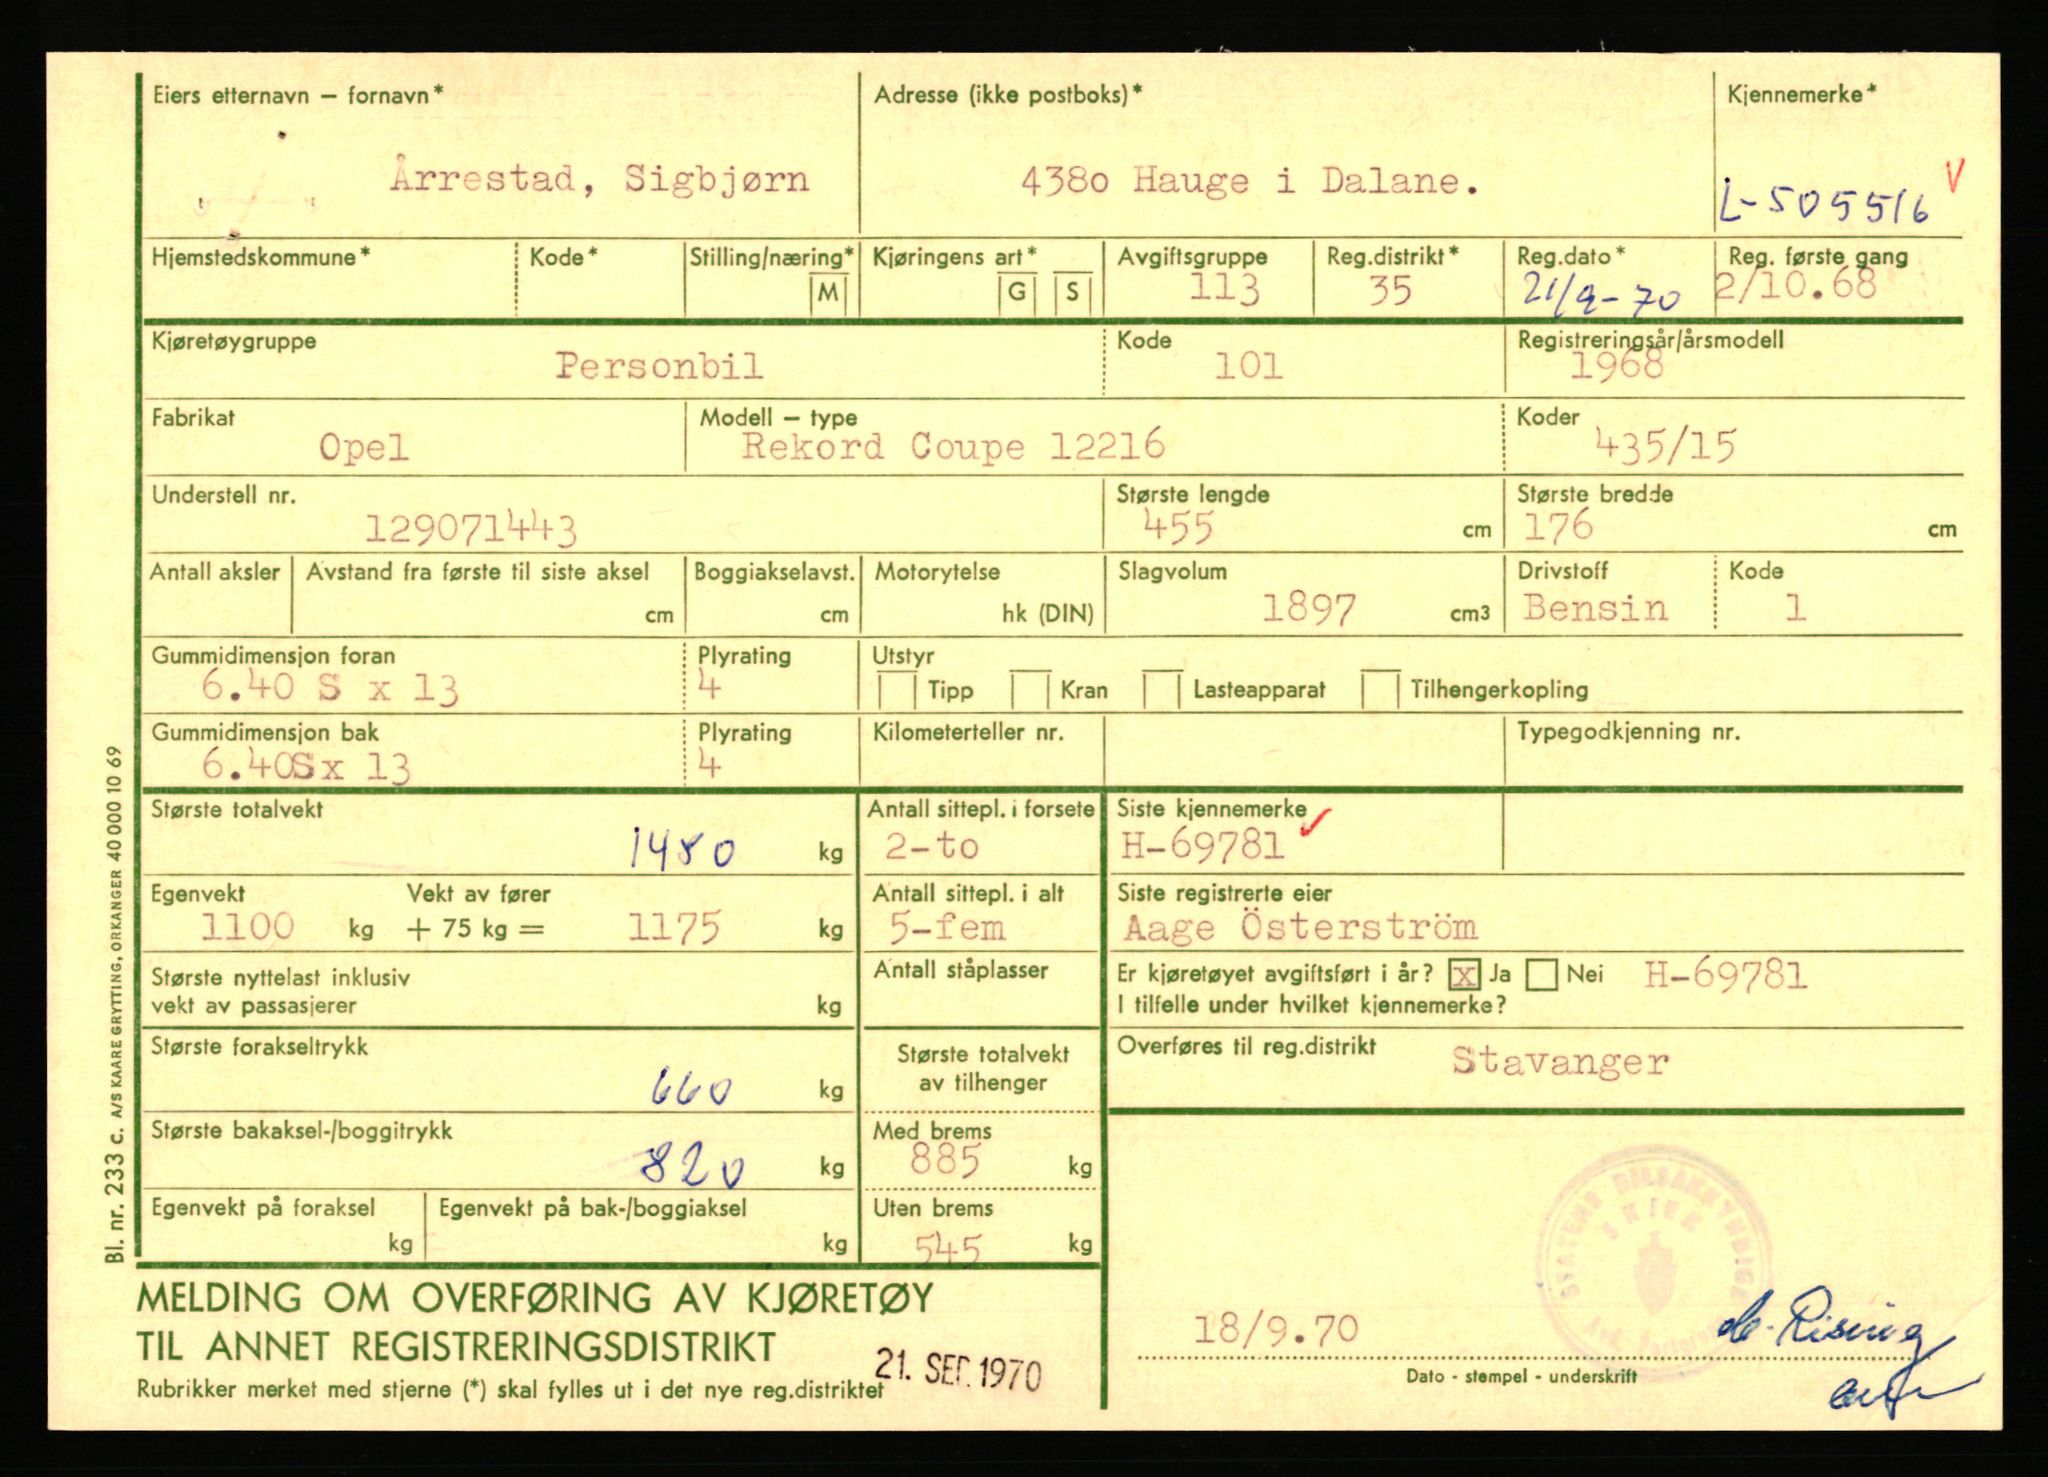 Eiers etternavn – fornavn*
Adresse (ikke postboks)*
Kjennemerke*
Årrestad, Sigbjørn
4380 Hauge i Dalane.
L-505516 V
Hjemstedskommune*
Kode*
Stilling/næring*
M
Kjøringens art*
G S
Avgiftsgruppe
113
Reg.distrikt*
35
Reg.dato*
21/9-70
Reg. første gang
2/10.68
Kjøretøygruppe
Personbil
Kode
101
Registreringsår/årsmodell
1968
Fabrikat
Opel
Modell – type
Rekord Coupe 12216
Koder
435/15
Understell nr.
129071443
Største lengde
455 cm
Største bredde
176 cm
Antall aksler
Avstand fra første til siste aksel
cm
Boggiakselavst.
cm
Motorytelse
hk (DIN)
Slagvolum
1897 cm3
Drivstoff
Bensin
Kode
1
Gummidimensjon foran
6.40 S x 13
Plyrating
4
Utstyr
Tipp Kran Lasteapparat Tilhengerkopling
Gummidimensjon bak
6.40S x 13
Plyrating
4
Kilometerteller nr.
Typegodkjenning nr.
Største totalvekt
1480 kg
Antall sittepl. i forsete
2-to
Siste kjennemerke
H-69781
Egenvekt
1100 kg
Vekt av fører
+ 75 kg = 1175 kg
Antall sittepl. i alt
5-fem
Siste registrerte eier
Aage Österström
Største nyttelast inklusiv
vekt av passasjerer kg
Antall ståplasser
Er kjøretøyet avgiftsført i år? x Ja Nei H-69781
I tilfelle under hvilket kjennemerke?
Største forakseltrykk
660 kg
Største totalvekt
av tilhenger
Overføres til reg.distrikt
Stavanger
Største bakaksel-/boggitrykk
820 kg
Med brems
885 kg
Egenvekt på foraksel
kg
Egenvekt på bak-/boggiaksel
kg
Uten brems
545 kg
MELDING OM OVERFØRING AV KJØRETØY
TIL ANNET REGISTRERINGSDISTRIKT
Rubrikker merket med stjerne (*) skal fylles ut i det nye reg.distriktet
21. SEP. 1970
18/9.70
STATENS BILSAKKYNDIGE
SKIEN
Rising
Dato - stempel - underskrift
Bl. nr. 233 c. A/S KAARE GRYTTING, ORKANGER 40 000 10 69